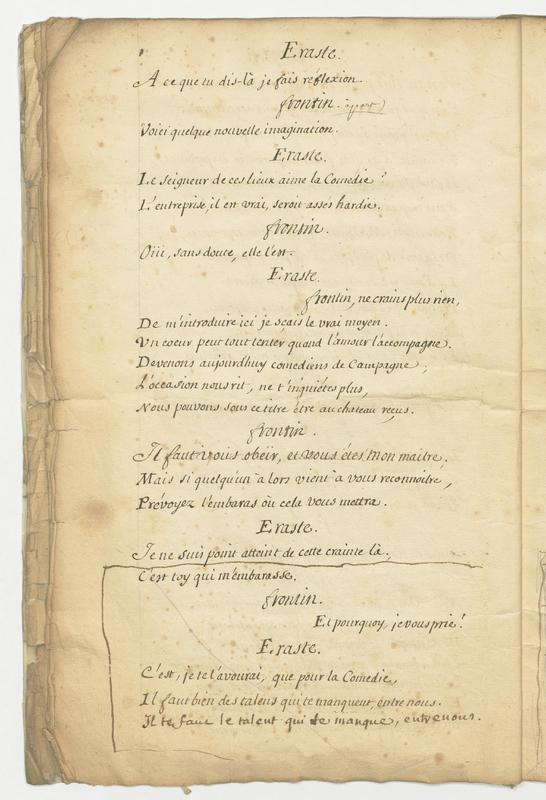 Eraste.
A ce que tu dis-là je fais réflexion.
frontin. apart)
Voici quelque nouvelle imagination.
Eraste.
Le seigneur de ces lieux aime la Comedie?
L'entreprise, il est vrai, seroit assés hardie.
frontin.
Oüi, sans doute, elle l'est.
Eraste.
frontin, ne crains plus rien,
De m'introduire ici je sçais le vrai moyen.
Un coeur peut tout tenter quand l'amour l'accompagne.
Devenons aujourdhuy comediens de Campagne,
L'occasion nous rit, ne t'inquiétes plus,
Nous pouvons sous ce titre être au chateau reçus.
frontin.
Il faut vous obeïr, et vous étes mon maitre,
Mais si quelqu'un àlors vient à vous reconnoitre,
Prévoyez l'embaras où cela vous mettra.
Eraste.
Je ne suis point atteint de cette crainte là,
C'est toy qui m'embarasse.
frontin.
Et pourquoy, je vous prie?
Eraste.
C'est, je te l'avourai, que pour la Comedie,
Il faut bien des talens qui te manquent, entre nous.
Il te faut le talent qui te manque, entre nous.